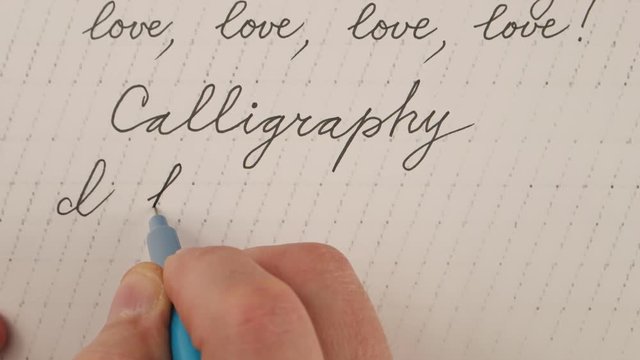 love, love, love, love!
Calligraphy
I l